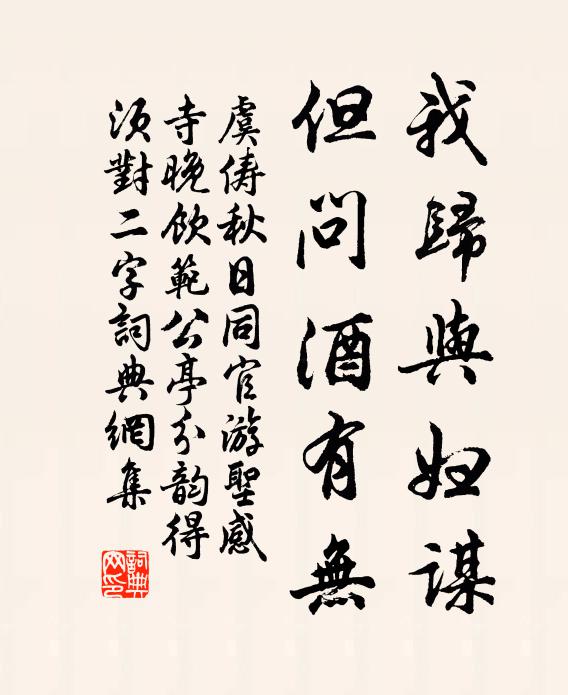 我歸與婦謀
但問酒有無
虞儔秋日同官游聖感
寺晚飲範公亭分韵得
須對二字詞典網集
詞典網印